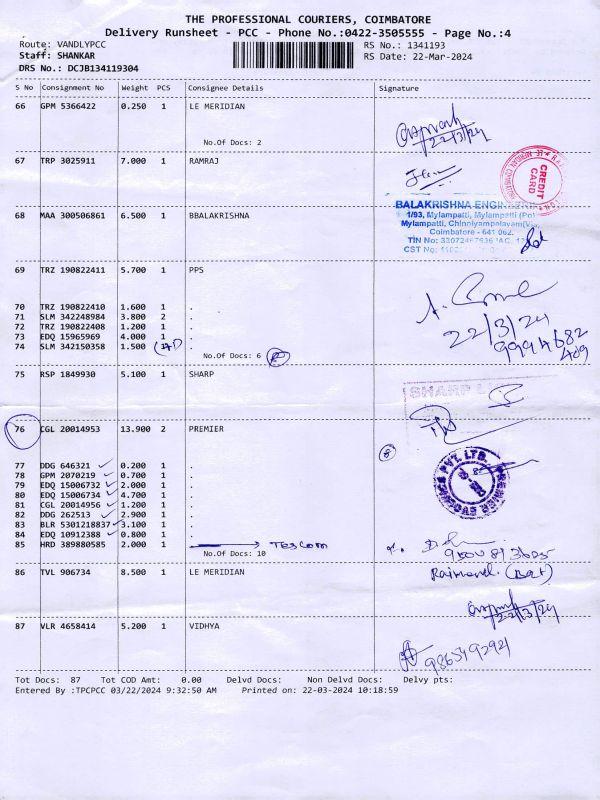 THE PROFESSIONAL COURIERS, COIMBATORE
Delivery Runsheet - PCC - Phone No.:0422-3505555 - Page No.:4
Route: VANDLYPCC RS No.: 1341193
Staff: SHANKAR RS Date: 22-Mar-2024
DRS No.: DCJB134119304
S No Consignment No Weight PCS Consignee Details Signature
66 GPM 5366422 0.250 1 LE MERIDIAN
No.Of Docs: 2
22/3/24
67 TRP 3025911 7.000 1 RAMRAJ
CREDIT CARD
68 MAA 300506861 6.500 1 BBALAKRISHNA
BALAKRISHNA ENGINEERI
1/93, Mylampatti, Mylampatti (Po)
Mylampatti, Chinniyampalayam(Via)
Coimbatore - 641 062.
69 TRZ 190822411 5.700 1 PPS
70 TRZ 190822410 1.600 1 .
71 SLM 342248984 3.800 2 .
72 TRZ 190822408 1.200 1 .
73 EDQ 15965969 4.000 1 .
74 SLM 342150358 1.500 .
No.Of Docs: 6
22/3/24
9994682
409
75 RSP 1849930 5.100 1 SHARP
SHARP
76 CGL 20014953 13.900 2 PREMIER
8
PVT. LTD.
77 DDG 646321 0.200 1 .
78 GPM 2070219 0.700 1 .
79 EDQ 15006732 2.000 1 .
80 EDQ 15006734 4.700 1 .
81 CGL 20014956 1.200 1 .
82 DDG 262513 2.900 1 .
83 BLR 5301218837 3.100 1 .
84 EDQ 10912388 0.800 1 .
85 HRD 389880585 2.000 1
No.Of Docs: 10
86 TVL 906734 8.500 1 LE MERIDIAN
22/3/24
87 VLR 4658414 5.200 1 VIDHYA
Tot Docs: 87 Tot COD Amt: 0.00 Delvd Docs: Non Delvd Docs: Delvy pts:
Entered By :TPCPCC 03/22/2024 9:32:50 AM Printed on: 22-03-2024 10:18:59